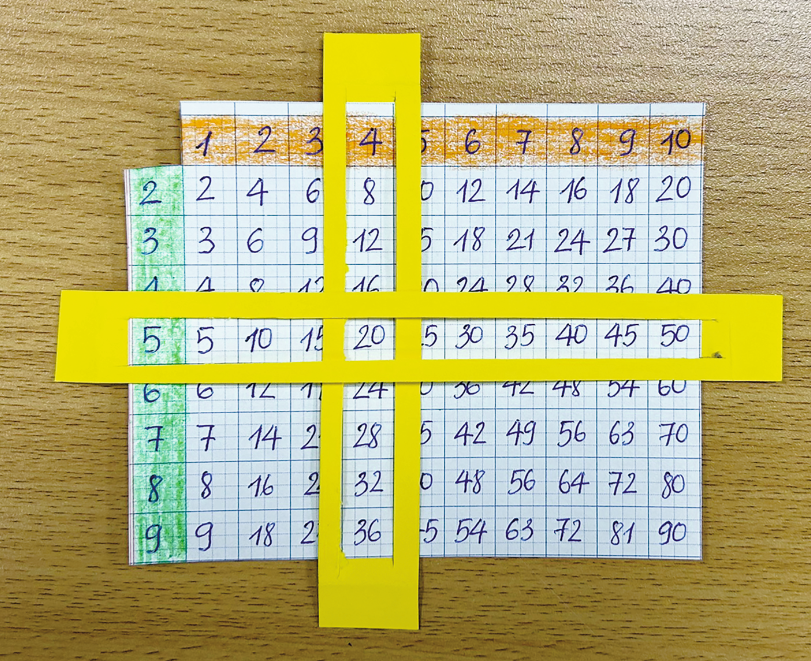 1 2 3 4 6 7 8 9 10
2 2 4 6 8 12 14 16 18 20
3 3 6 9 12 18 21 24 27 30
4 16 24 28 32 36 40
5 5 10 15 20 30 35 40 45 50
6 6 12 24 36 42 48 54 60
7 7 14 28 42 49 56 63 70
8 8 16 32 48 56 64 72 80
9 9 18 36 54 63 72 81 90